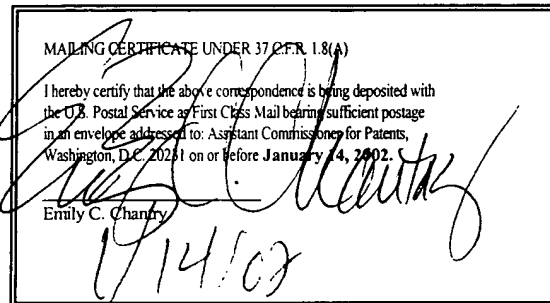 MAILING CERTIFICATE UNDER 37 C.F.R. 1.8(A)
I hereby certify that the above correspondence is being deposited with
the U.S. Postal Service as First Class Mail bearing sufficient postage
in an envelope addressed to: Assistant Commissioner for Patents,
Washington, D.C. 20231 on or before January 14, 2002.
Emily C. Chantry
Emily C. Chantry
1/14/02